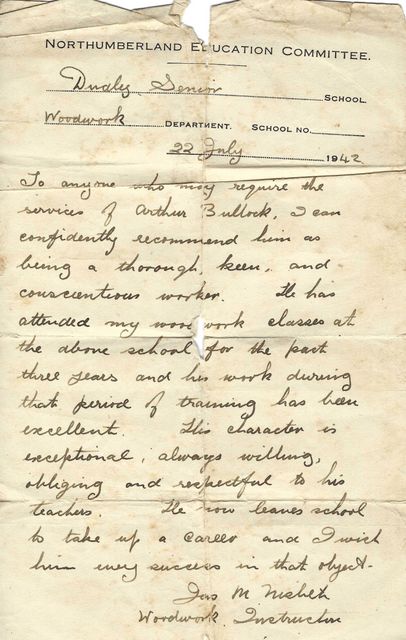 NORTHUMBERLAND EDUCATION COMMITTEE.
Dudley Senior SCHOOL.
Woodwork DEPARTMENT. SCHOOL NO.
22 July 1942
To anyone who may require the
services of Arthur Bullock, I can
confidently recommend him as
being a thorough, keen, and
conscientious worker. He has
attended my woodwork classes at
the above school for the past
three years and his work during
that period of training has been
excellent. His character is
exceptional, always willing,
obliging and respectful to his
teachers. He now leaves school
to take up a career and I wish
him every success in that object.
Jas M Nisbeth
Woodwork Instructor